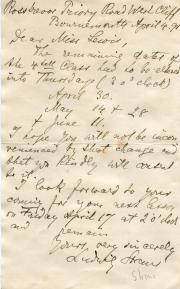 Rossbeen Priory Road West Cliff
Bournemouth April 4. 91
Dear Miss Lewis,
The remaining dates of
the Class had to be altered
into Thursday (3 o'clock)
April 30.
May 14 & 28
& June 11.
I hope you will not be incon
venienced by that change and
that you kindly will consent
to it.
I look forward to your
coming for your next lesson
on Friday April 17 at 2 o'clock
and remain
Yours very sincerely
Ludwig